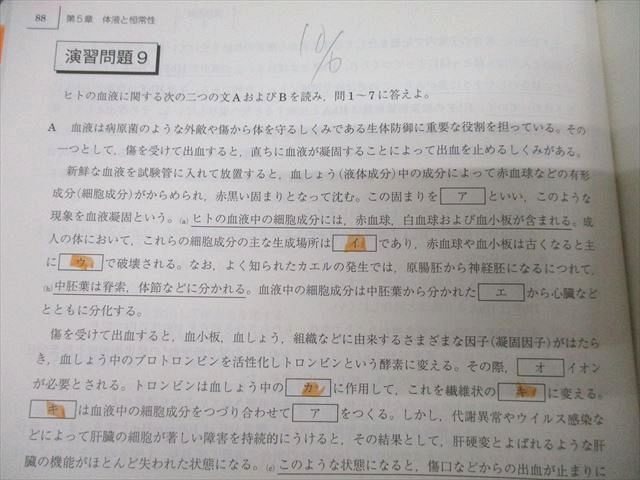 88 第5章 体液と恒常性
10/6
演習問題9
ヒトの血液に関する次の二つの文AおよびBを読み，問1～7に答えよ。
A 血液は病原菌のような外敵や傷から体を守るしくみである生体防御に重要な役割を担っている。その
一つとして，傷を受けて出血すると，直ちに血液が凝固することによって出血を止めるしくみがある。
新鮮な血液を試験管に入れて放置すると，血しょう(液体成分)中の成分によって赤血球などの有形
成分(細胞成分)がからめられ，赤黒い固まりとなって沈む。この固まりを ア といい，このような
現象を血液凝固という。(a)ヒトの血液中の細胞成分には，赤血球，白血球および血小板が含まれる。成
人の体において，これらの細胞成分の主な生成場所は イ であり，赤血球や血小板は古くなると主
に ウ で破壊される。なお，よく知られたカエルの発生では，原腸胚から神経胚になるにつれて，
(b)中胚葉は脊索，体節などに分かれる。血液中の細胞成分は中胚葉から分かれた エ から心臓など
とともに分化する。
傷を受けて出血すると，血小板，血しょう，組織などに由来するさまざまな因子(凝固因子)がはたら
き，血しょう中のプロトロンビンを活性化しトロンビンという酵素に変える。その際， オ イオン
が必要とされる。トロンビンは血しょう中の カ に作用して，これを繊維状の キ に変える。
キ は血液中の細胞成分をつづり合わせて ア をつくる。しかし，代謝異常やウイルス感染な
どによって肝臓の細胞が著しい障害を持続的にうけると，その結果として，肝硬変とよばれるような肝
臓の機能がほとんど失われた状態になる。(c)このような状態になると，傷口などからの出血が止まりに